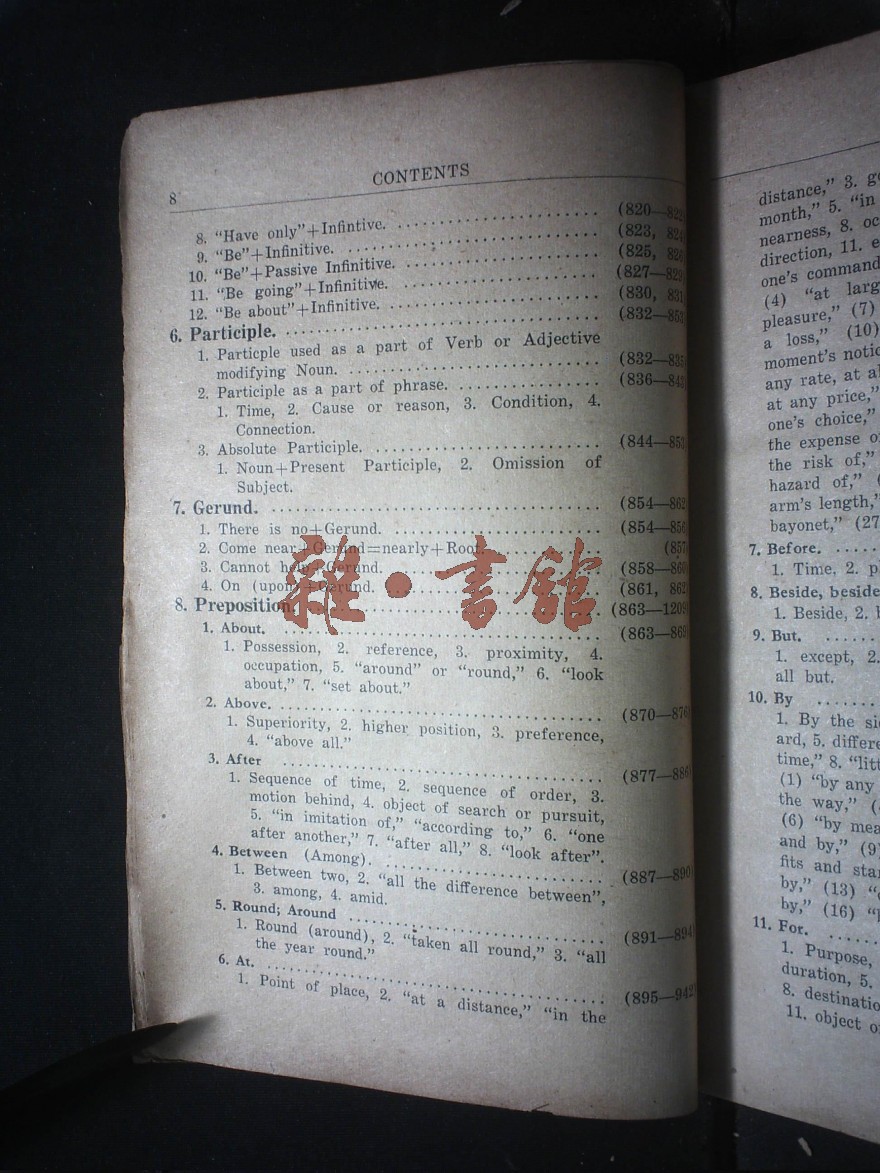 8
CONTENTS
8. “Have only”+Infintive. (820—822)
9. “Be”+Infinitive. (823, 824)
10. “Be”+Passive Infinitive. (825, 826)
11. “Be going”+Infinitive. (827—829)
12. “Be about”+Infinitive. (830, 831)
6. Participle. (832—853)
1. Particple used as a part of Verb or Adjective
modifying Noun. (832—835)
2. Participle as a part of phrase. (836—843)
1. Time, 2. Cause or reason, 3. Condition, 4.
Connection.
3. Absolute Participle. (844—853)
1. Noun+Present Participle, 2. Omission of
Subject.
7. Gerund. (854—862)
1. There is no+Gerund. (854—856)
2. Come near+Gerund=nearly+Root. (857)
3. Cannot help+Gerund. (858—860)
4. On (upon)+Gerund. (861, 862)
8. Preposition. (863—1209)
雜·書館
1. About. (863—869)
1. Possession, 2. reference, 3. proximity, 4.
occupation, 5. “around” or “round,” 6. “look
about,” 7. “set about.”
2. Above. (870—876)
1. Superiority, 2. higher position, 3. preference,
4. “above all.”
3. After (877—886)
1. Sequence of time, 2. sequence of order, 3.
motion behind, 4. object of search or pursuit,
5. “in imitation of,” “according to,” 6. “one
after another,” 7. “after all,” 8. “look after”.
4. Between (Among). (887—890)
1. Between two, 2. “all the difference between”,
3. among, 4. amid.
5. Round; Around (891—894)
1. Round (around), 2. “taken all round,” 3. “all
the year round.”
6. At. (895—942)
1. Point of place, 2. “at a distance,” “in the
distance,” 3.
month,” 5. “in
nearness, 8.
direction, 11.
one's command
(4) “at larg
pleasure,” (7)
a loss,” (10)
moment's notic
any rate, at
at any price,”
one's choice,”
the expense
the risk of,”
hazard of,”
arm's length,”
bayonet,” (27
7. Before.
1. Time, 2.
8. Beside, beside
1. Beside, 2.
9. But.
1. except, 2.
all but.
10. By
1. By the
ard, 5. differe
time,” 8. “litt
(1) “by any
the way,”
(6) “by mea
and by,” (9)
fits and sta
by,” (13)
by,” (16)
11. For.
1. Purpose,
duration, 5.
8. destinatio
11. object